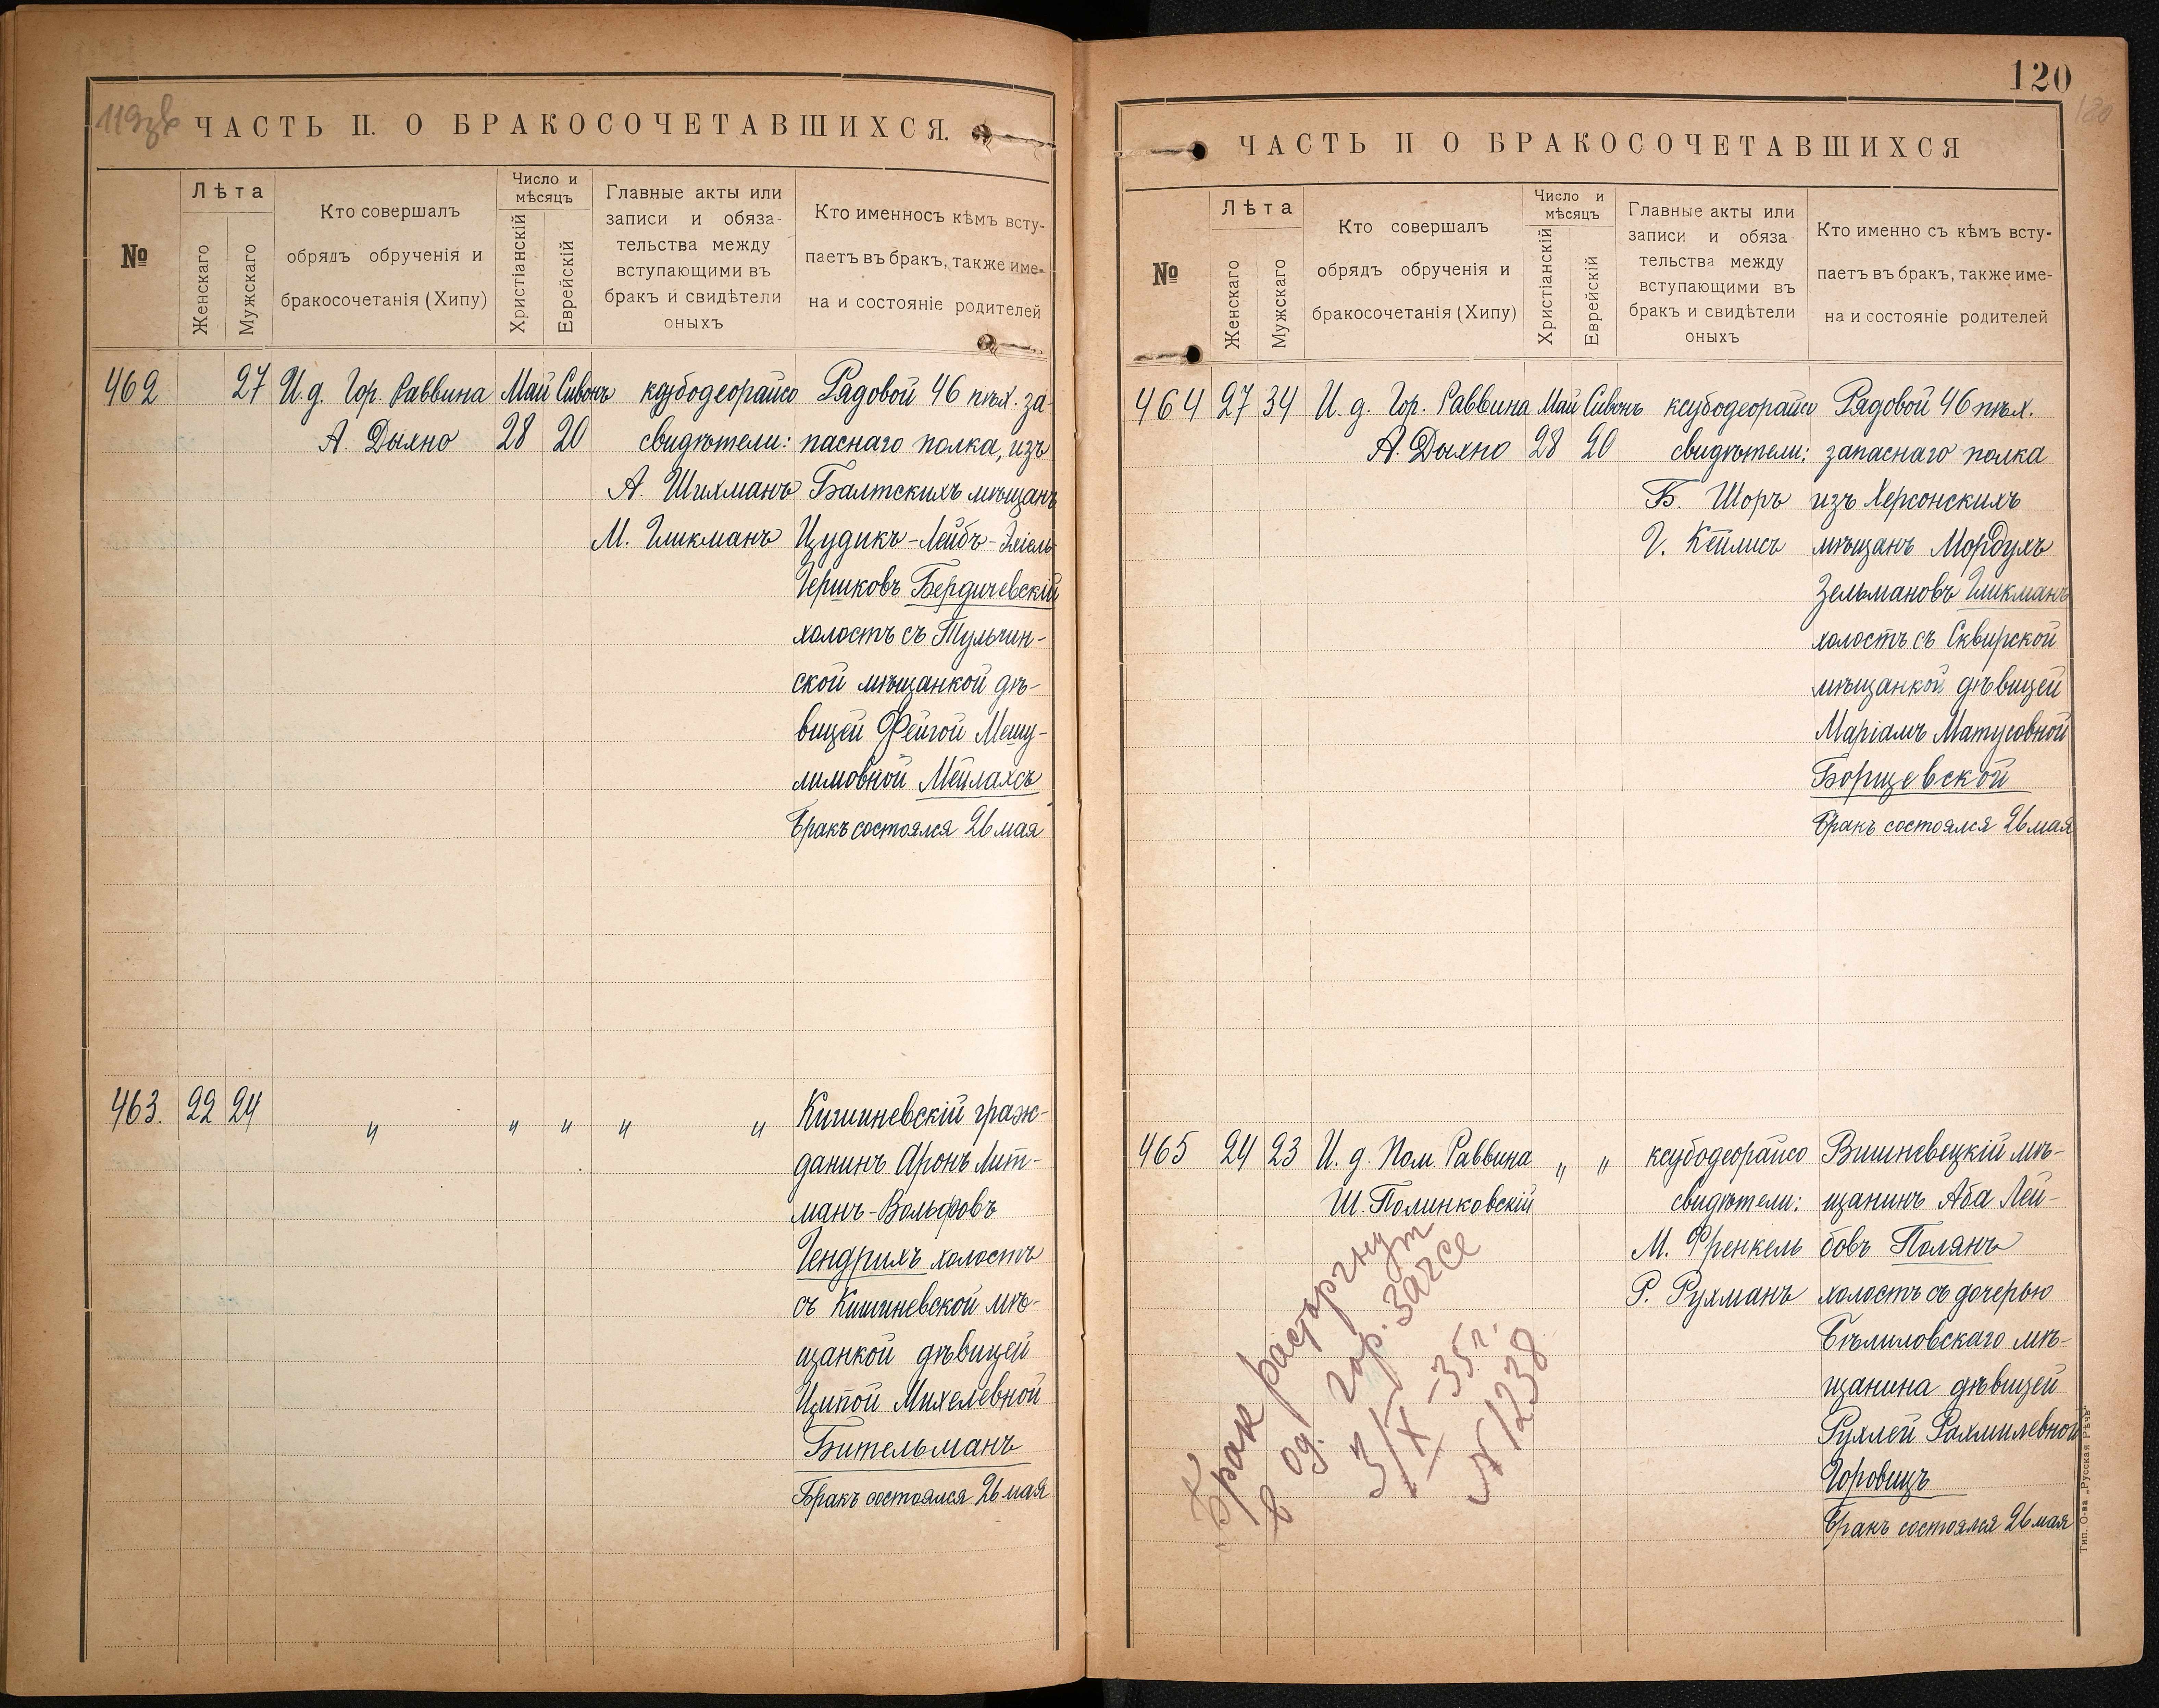 119зв
ЧАСТЬ II. О БРАКОСОЧЕТАВШИХСЯ.
№
Лѣта
Женскаго
Мужскаго
Кто совершалъ
обрядъ обрученія и
бракосочетанія (Хипу)
Число и
мѣсяцъ
Христіанскій
Еврейскій
Главные акты или
записи и обяза-
тельства между
вступающими въ
бракъ и свидѣтели
оныхъ
Кто именносъ кѣмъ всту-
паетъ въ бракъ, также име-
на и состояніе родителей
462 27 И.д. Гор. Раввина Май Сивонъ ксубодеорайсо Рядовой 46 пѣх. за-
А. Дыхно 28 20 свидѣтели: паснаго полка, изъ
А. Шихманъ Балтскихъ мѣщанъ
М. Гликманъ Цудикъ-Лейбъ-Эхіель-
Гершковъ Бердичевскій
холостъ съ Тульчин-
ской мѣщанкой дѣ-
вицей Фейгой Мешу-
лимовной Мейлахсъ
Бракъ состоялся 26 мая
463. 22 24 " " " " " Кишиневскій граж-
данинъ Аронъ Лит-
манъ-Вольфовъ
Гендрихъ холостъ
съ Кишиневской мѣ-
щанкой дѣвицей
Ципой Михелевной
Бительманъ
Бракъ состоялся 26 мая
120
120
ЧАСТЬ II О БРАКОСОЧЕТАВШИХСЯ
№
Лѣта
Женскаго
Мужскаго
Кто совершалъ
обрядъ обрученія и
бракосочетанія (Хипу)
Число и
мѣсяцъ
Христіанскій
Еврейскій
Главные акты или
записи и обяза
тельства между
вступающими въ
бракъ и свидѣтели
оныхъ
Кто именно съ кѣмъ всту-
паетъ въ бракъ, также име-
на и состояніе родителей
464 27 34 И. д. Гор. Раввина Май Сивонъ ксубодеорайсо Рядовой 46 пѣх.
А. Дыхно 28 20 свидѣтели: запаснаго полка
Б. Шоръ изъ Херсонскихъ
Г. Кейлисъ мѣщанъ Мордухъ
Зельмановъ Гликманъ
холостъ съ Сквирской
мѣщанкой дѣвицей
Маріамъ Матусовной
Борщевской
Бракъ состоялся 26 мая
465 24 23 И. д. Пом. Раввина " " ксубодеорайсо Вишневецкій мѣ-
Ш. Полинковскій свидѣтели: щанинъ Аба Лей-
М. Френкель бовъ Полянъ
Р. Рухманъ холостъ съ дочерью
Бѣлиловскаго мѣ-
щанина дѣвицей
Рухлей Рахмилевной
Горовицъ
Бракъ состоялся 26 мая
Брак расторгнут
в Од. Гор. Загсе
3/X-35г.
N 1238
Тип. О-ва „Русская Рѣчь"